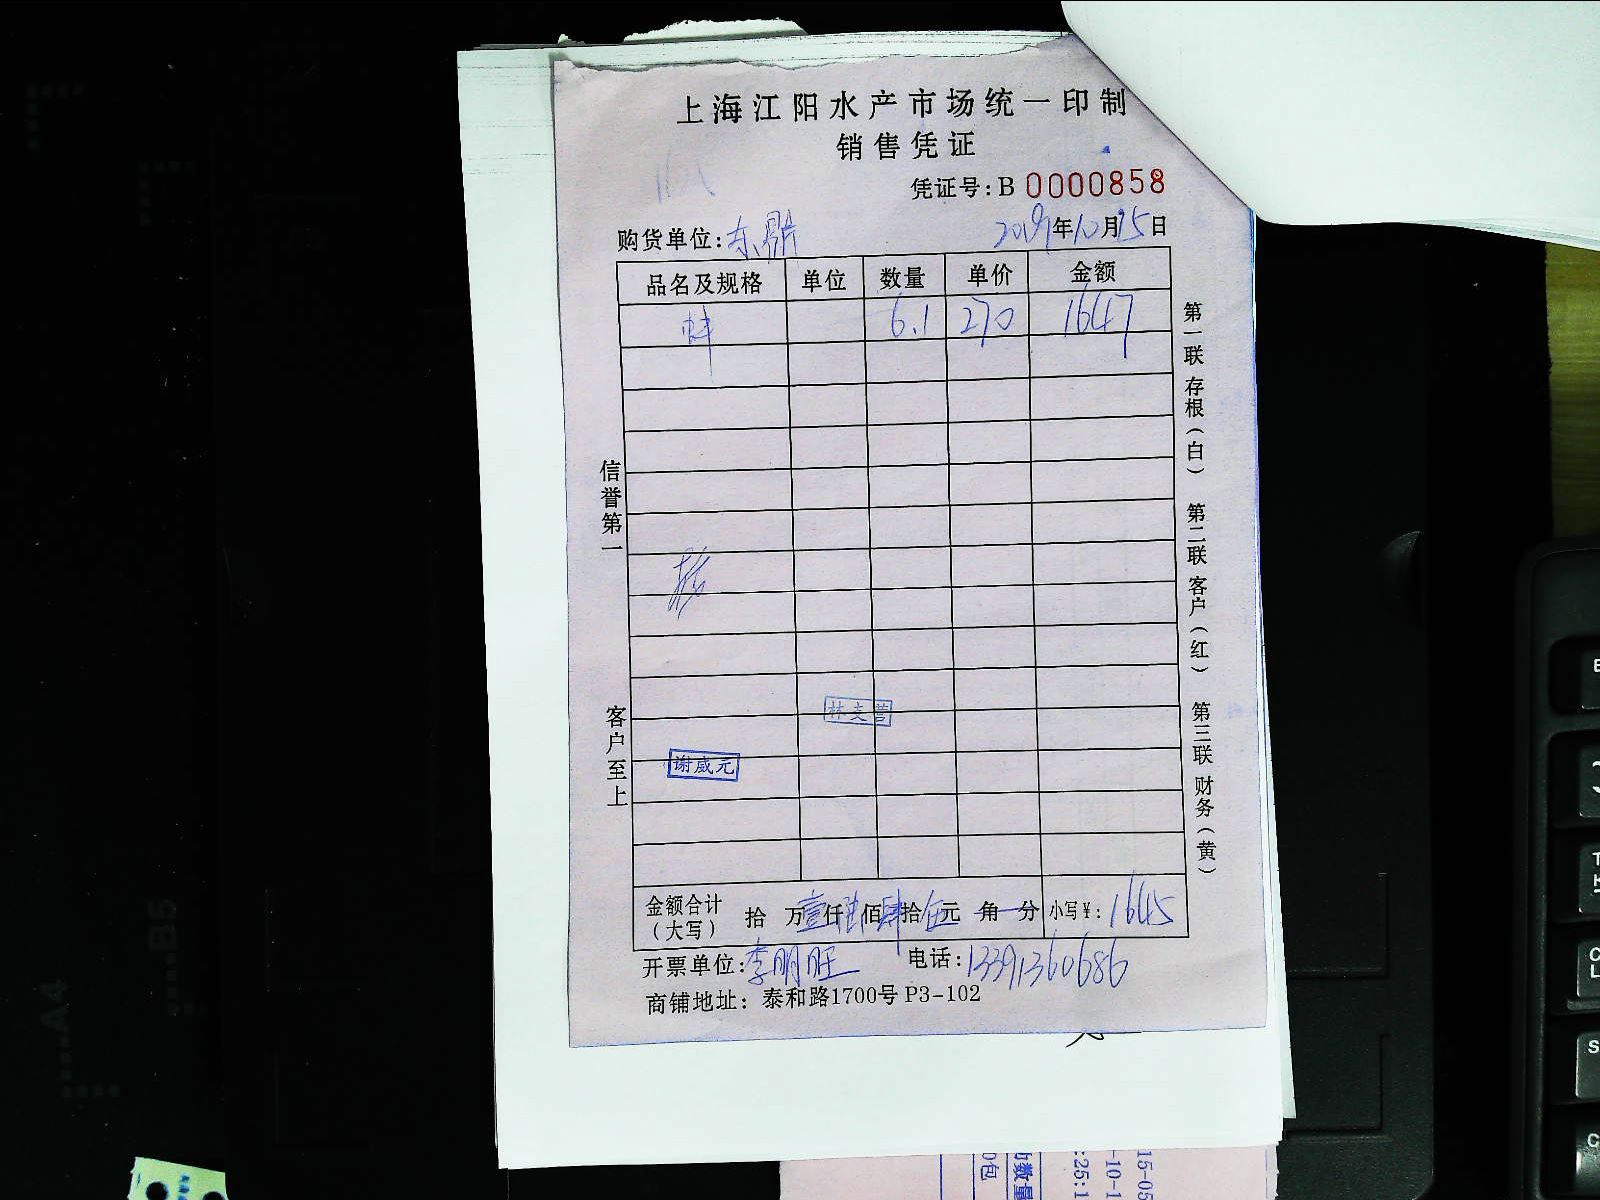 上海江阳水产市场统一印制
销售凭证
凭证号:B 0000858
购货单位: 2019年10月15日
品名及规格 单位 数量 单价 金额
蚌 6.1 270 1647
信誉第一
客户至上
林支营
谢咸元
第一联 存根(白) 第二联 客户(红) 第三联 财务(黄)
金额合计(大写) 拾 万壹仟陆佰肆拾伍元 角 分 小写¥: 1645
开票单位:李朋旺 电话:13391360686
商铺地址: 泰和路1700号 P3-102
A4
B5